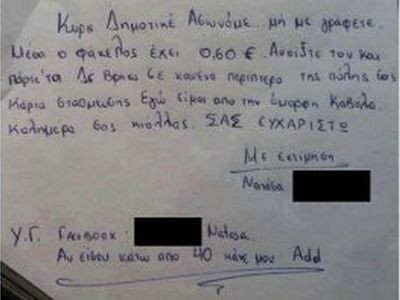 Κυριε Δημοτικέ Αστυνόμε... μή με γράφετε.
Μέσα ο φάκελος έχει 0,60 €. Ανοίξτε τον και
πάρτε τα Δε βρήκα σε κανένα περίπτερο της πόλης σας
Κάρτα στάθμευσης Εγώ είμαι από την όμορφη Καβάλα.
Καλημέρα σας κιόλλας. ΣΑΣ ΕΥΧΑΡΙΣΤΩ
Με εκτίμηση
Νατάσα
Υ.Γ. Facebook. Natasa.
Αν είσαι κάτω από 40 κάνε μου Add